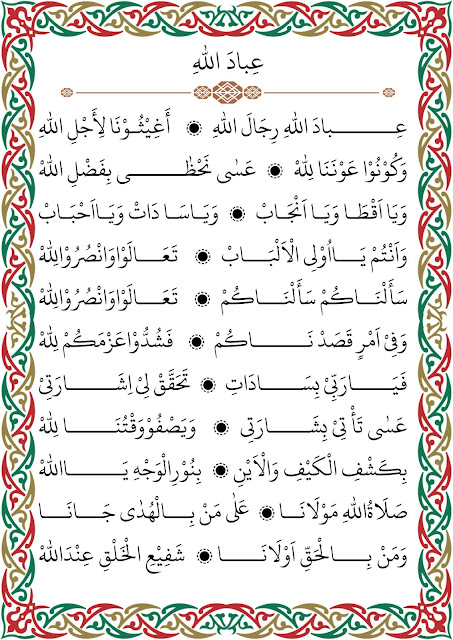 عِبادَ اللهِ
عِـــبادَ اللهِ رِجَالَ اللهِ ۞ أَغِيْثُـوْنَا لِأَجْلِ اللهِ
وَكُوْنُوْا عَوْنَنَا لِلهْ ۞ عَسٰى نَحْظٰى بِفَضْلِ اللهْ
وَيَا اَقْطَا وَيَـا اَنْجَابْ ۞ وَيَـاسَـادَاتْ وَيَـااَحْبَابْ
وَاَنْتُمْ يَـــااُولِى الْاَلْبَابْ ۞ تَعَـالَوْاوَانْصُرُوْالِلهْ
سَأَلْنَـاكُمْ سَأَلْنَـاكُمْ ۞ تَعَـالَوْاوَانْصُرُوْالِلهْ
وَفِيْ اَمْرٍ قَصَدْ نَـــاكُمْ ۞ فَشُدُّوْاعَزْمَكُمْ لِلهْ
فَيَـــارَبِّيْ بِسَـــادَاتِ ۞ تَحَقَّقْ لِيْ اِشَـــارَتِيْ
عَسٰى تَأْ تِيْ بِشَـارَتِي ۞ وَيَصْفُوْوَقْتُنَـــا لِلهْ
بِكَشْفِ الْكَيْفِ وَالْاَيْنِ ۞ بِنُوْرِالْوَجْهِ يَـــااللهْ
صَلَاةُاللهِ مَوْلَانَـا ۞ عَلٰى مَنْ بِـالْهُدٰى جَـانَـا
وَمَنْ بِـــالْحَقِّ اَوْلَانَـــا ۞ شَفِيْعِ الْخَلْقِ عِنْدَاللهْ